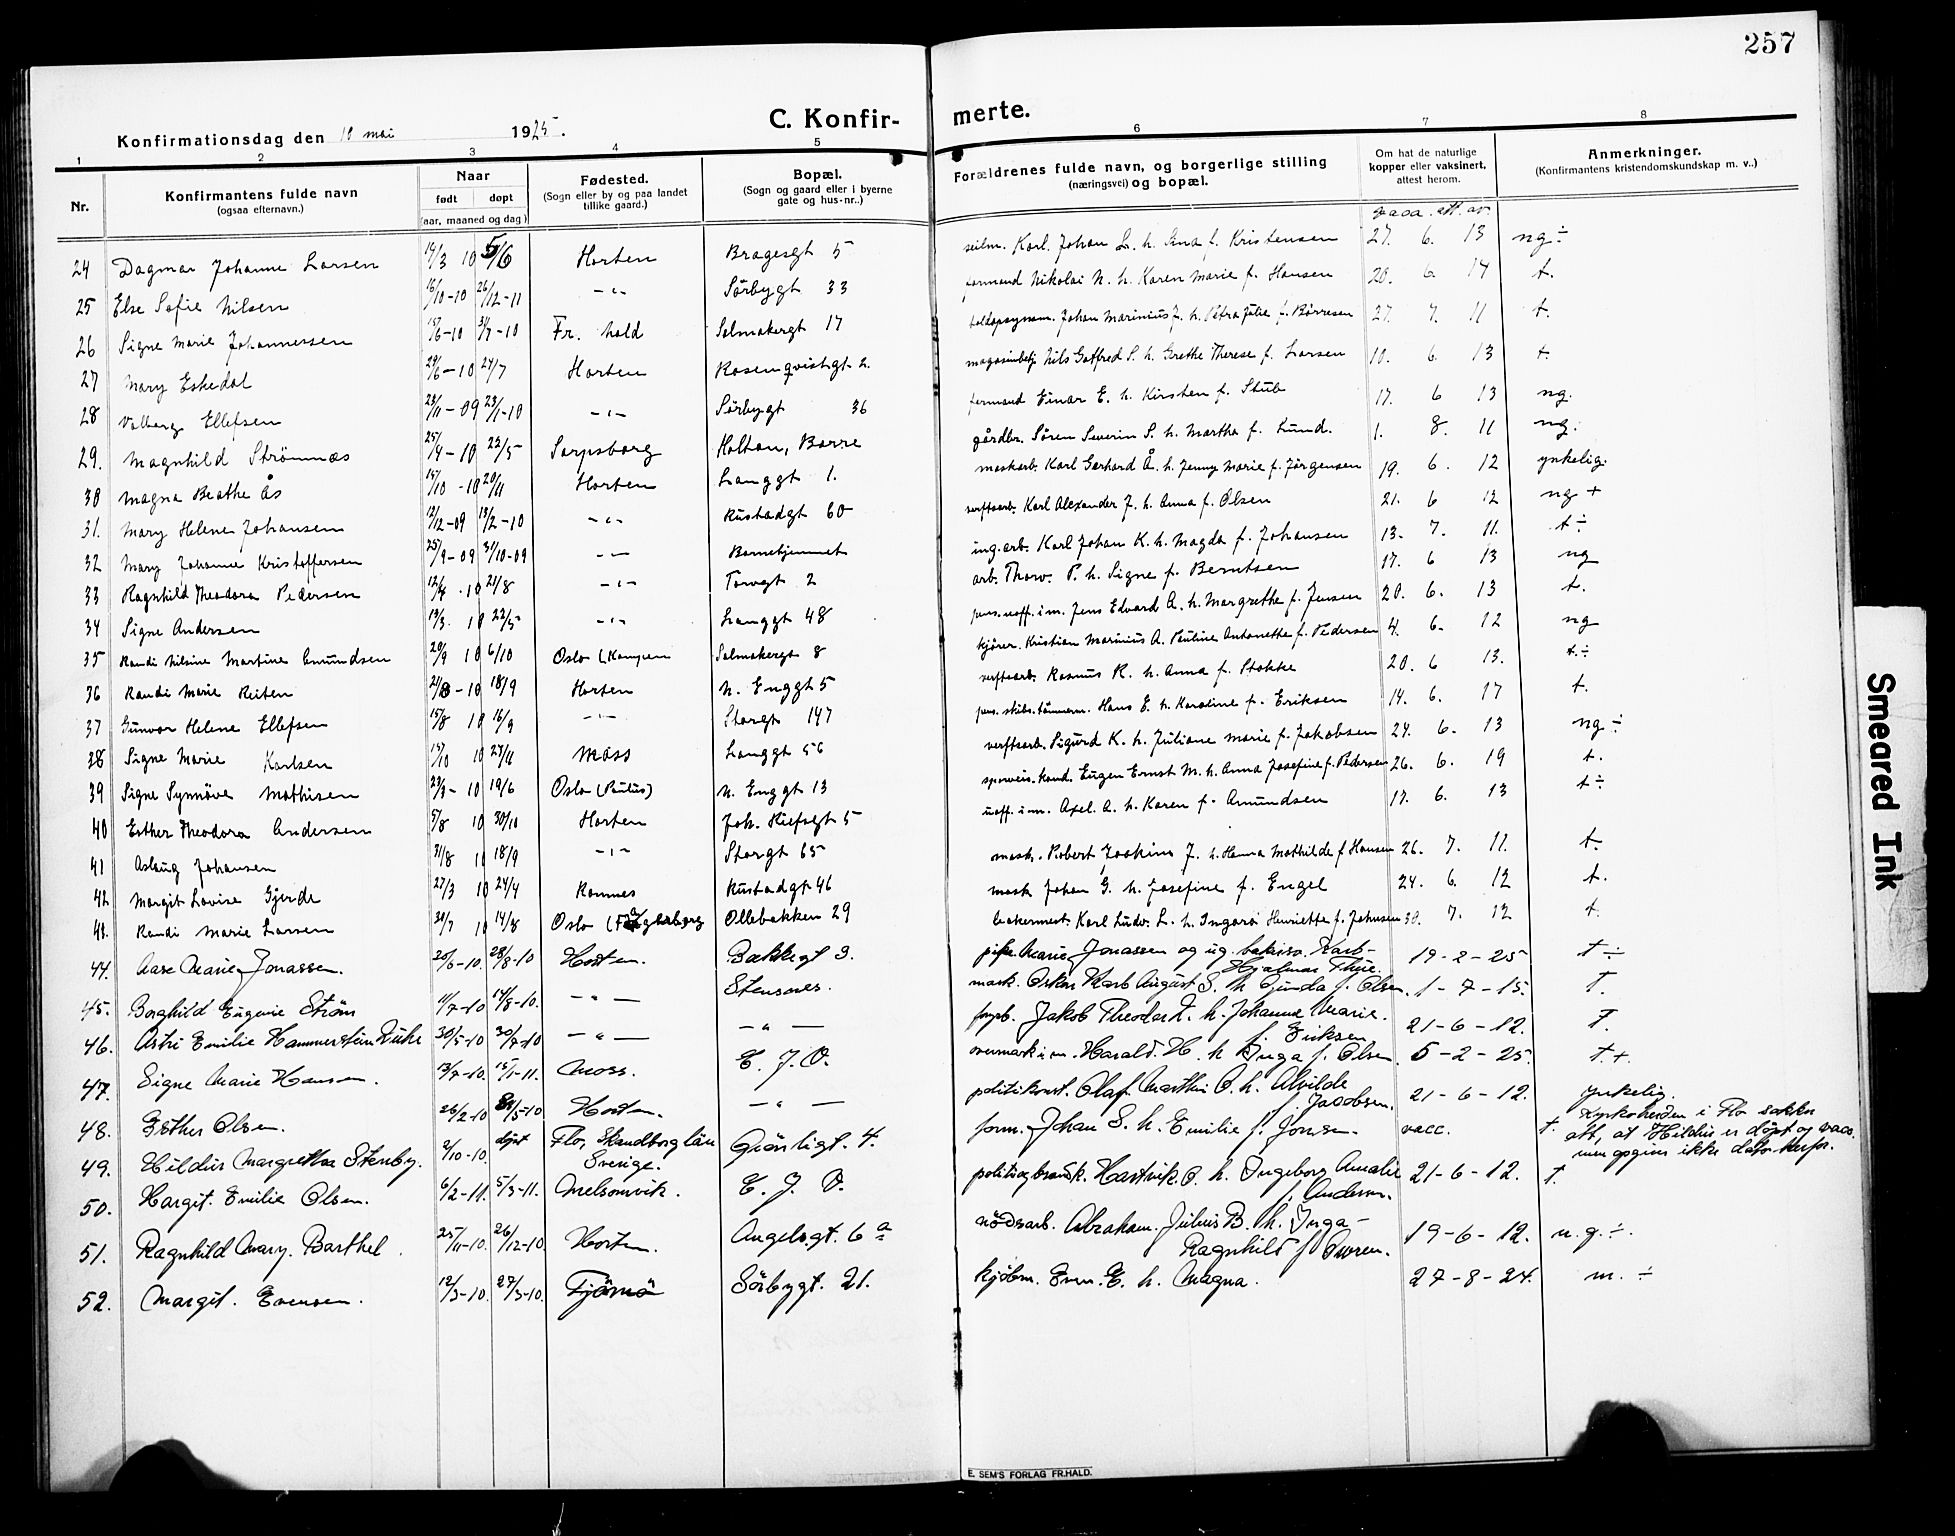 257
C. Konfirmerte.
Konfirmationsdag den 10 mai 1925.
1 2 3 4 5 6 7 8
Nr.
Konfirmantens fulde navn
(ogsaa efternavn.)
Naar
født døpt
(aar, maaned og dag)
Fødested.
(Sogn eller by og paa landet
tillike gaard.)
Bopæl.
(Sogn og gaard eller i byerne
gate og hus-nr..)
Forældrenes fulde navn, og borgerlige stilling
(næringsvei) og bopæl.
Om hat de naturlige
kopper eller vaksinert,
attest herom.
Anmerkninger.
(Konfirmantens kristendomskundskap m. v..)
vacc. att. av.
24 Dagmar Johanne Larsen 14/3 10 5/6 Horten Bragesgt 5 seilm. Karl Johan L. h. Ana f. Kristensen 27. 6. 13 ng÷
25 Else Sofie Nilsen 16/10-10 26/12-11 -"- Sørbygt 33 formand Nikolai N. h. Karen Marie f. Hansen 20. 6. 14 t.
26 Signe Marie Johannessen 15/6-10 3/7-10 Fr. hald Salmakergt 17 Johan Marinius J. h. Petra Julie f. Børresen 27. 7. 11 t.
27 Mary Eskedal 29/6-10 24/7 Horten Rosenqvistgt. 2. Nils Gotfred S. h. Grethe Therese f. Larsen 10. 6. 13 t.
28 Valborg Ellefsen 23/11-09 23/1-10 -"- Sørbygt 36 formand Einar E. h. Kirsten f. Stub 17. 6 13 ng.
29. Magnhild Strømnæs 25/4-10 22/5 Sarpsborg Holtan, Borre gårdbr. Søren Severin S. h. Martha f. Lund. 1. 8. 11 ng.
30 Magna Beathe Ås 15/10-10 20/11 Horten Langgt 1. maskarb. Karl Gerhard Å. h. Jenny Marie f. Jørgensen 19. 6. 12 ynkelig.
31. Mary Helene Johansen 12/12-09 13/2-10 -"- Rustadgt 60 verftsarb. Karl Alexander J. h. Anna f. Olsen 21. 6 12 ng +
32 Mary Johanne Kristoffersen 25/9-09 31/10-09 -"- Barnehjemmet ing.arb. Karl Johan K. h. Magda f. Johansen 13. 7. 11. t÷
33 Ragnhild Theodora Pedersen 12/4 10 21/8 -"- Torvgt 2 arb. Thorv. P. h. Signe f. Berntsen 17. 6 13 ng
34 Signe Andersen 19/3. 10 22/5 -"- Langgt 48 pens. uoff. i m. Jens Edvard A. h. Margrethe f. Jensen 20. 6. 13 t.
35 Randi Nilsine Martine Amundsen 20/9 10 6/10 Oslo (Kampen Salmakergt 8 kjører. Kristian Marinius A. Pauline Antonette f. Pedersen 4. 6. 12 ng
36 Randi Marie Reiten 21/8-10 18/9 Horten N. Enggt 5 verftsarb. Rasmus R. h. Anna f. Stokke 20. 6 13. t.÷
37 Gunvor Helene Ellefsen 15/8 10 16/9 -"- Storgt 147 pens. skibs.tømmerm. Hans E. h. Karoline f. Eriksen 14. 6. 17 t.
38 Signe Marie Karlsen 15/10 10 27/11 Moss Langgt 56 verftsarb. Sigurd K. h. Juliane Marie f. Jakobsen 24. 6. 13 ng÷
39 Signe Synnøve Mathisen 22/3-10 19/6 Oslo (Paulus) N. Enggt 13 sporveis.kond. Eugen Ernst M. h. Anna Josefine f. Pedersen 26. 6. 19 t.
40 Esther Theodora Andersen 5/8 10 30/10 Horten Joh. Hiefsgt 5 uoff. i m. Axel. A. h. Karen f. Amundsen 17. 6. 13 t÷
41 Aslaug Johansen 31/8 10 18/9 -"- Storgt 65 mask. Robert Joakim J. h. Hanna Mathilde f Hansen 26. 7. 11. t.
42 Margit Lovise Gjerde 27/3 10 24/4 Ramnes Rustadgt 46 mask Johan G. h. Josefine f. Engel 24. 6. 12 t.
43. Randi Marie Larsen 30/7 10 14/8 Oslo (Fagerborg Ollebakken 29 bakermest. Karl Ludv. L. h. Ingara Henriette f. Johnsen 30. 7. 12 t.
44. Aase Marie Jonassen. 20/6-10. 28/8-10 Horten. Bakkegt 3. pike Marie Jonassen og ug. Karl Hjalmar Thue. 19-2-25 t÷
45. Borghild Eugenie Strøm 11/7-10 14/8-10. -"- Stensnes. mask. Oskar Karl August S. h Gunda f. Olsen. 1-7-15. T.
46. Astri Emilie Hammerstein Dühr 30/5-10 30/7-10 -"- -"- Jakob Theodor D. h. Johanne Marie f. Eriksen 21-6-12. T.
47. Signe Marie Hansen. 13/7-10. 15/1-11. Moss. E. J. O. overmask i m. Harald. H. h Inga f. Olsen. 5-2-25. t.+
48. Esther Olsen. 26/2-10 21/5-10 Horten. -"- politikonst. Olaf Marthin O. h. Alvilde f. Jacobsen. 21-6-12. Ynkelig.
49. Hildur Margretha Stenby. 2/10-10. døpt Flo, Skaraborg län Sverige. Grönligt. 4. form. Johan S. h. Emilie f. Jonson vacc. t. Kyrkoherden i Flo sokn att, at Hildur er döpt og vacc. men opgir ikke dato derfor.
50. Margit. Emilie Olsen. 6/2-11. 5/3-11. Melsomvik. E. J. O. politi og brandk. Hartvik. O. h. Ingeborg Amalie f. Andersen. 21-6-12. t.
51. Ragnhild Mary. Barthel. 25/11-10. 26/12-10. Horten. Angelsgt. 6 a nödsarb. Abraham. Julius B. h. Inga Ragnhild f. Osoren. 19-6-12. n.g.÷.
52. Margit. Evensen. 12/3-10. 27/3-10. Tjömö Sörbygt. 21. kjøbm. Even. E. h. Magna. 27-8-24. m. ÷
E. SEM'S FORLAG FR.HALD.
Smeared Ink